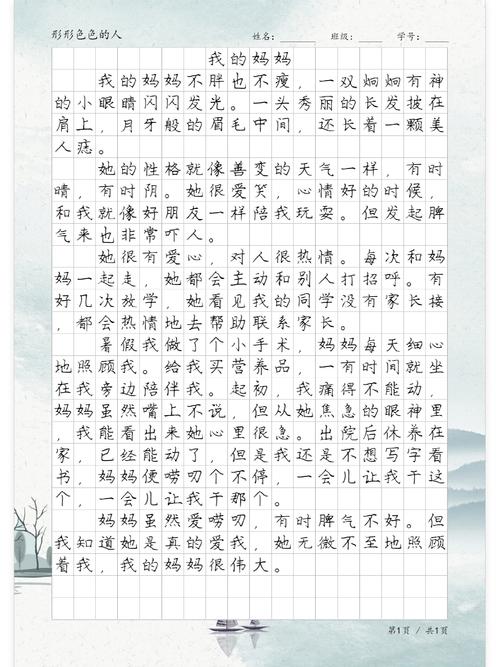 形形色色的人 姓名： 班级： 学号：
我的妈妈
我的妈妈不胖也不瘦，一双炯炯有神
的小眼睛闪闪发光。一头秀丽的长发披在
肩上，月牙般的眉毛中间，还长着一颗美
人痣。
她的性格就像善变的天气一样，有时
晴，有时阴。她很爱笑，心情好的时候，
和我就像好朋友一样陪我玩耍。但发起脾
气来也非常吓人。
她很有爱心，对人很热情。每次和妈
妈一起走，她都会主动和别人打招呼。有
好几次放学，她看见我的同学没有家长接
，都会热情地去帮助联系家长。
暑假我做了个小手术，妈妈每天细心
地照顾我。给我买营养品，一有时间就坐
在我旁边陪伴我。起初，我痛得不能动，
妈妈虽然嘴上不说，但从她焦急的眼神里
，我能看出来她心里很急。出院后休养在
家，已经能动了，但是我还是不想写字看
书，妈妈便唠叨个不停，一会儿让我干这
个，一会儿让我干那个。
妈妈虽然爱唠叨，有时脾气不好。但
我知道她是真的爱我，她无微不至地照顾
着我，我的妈妈很伟大。
第1页 / 共1页